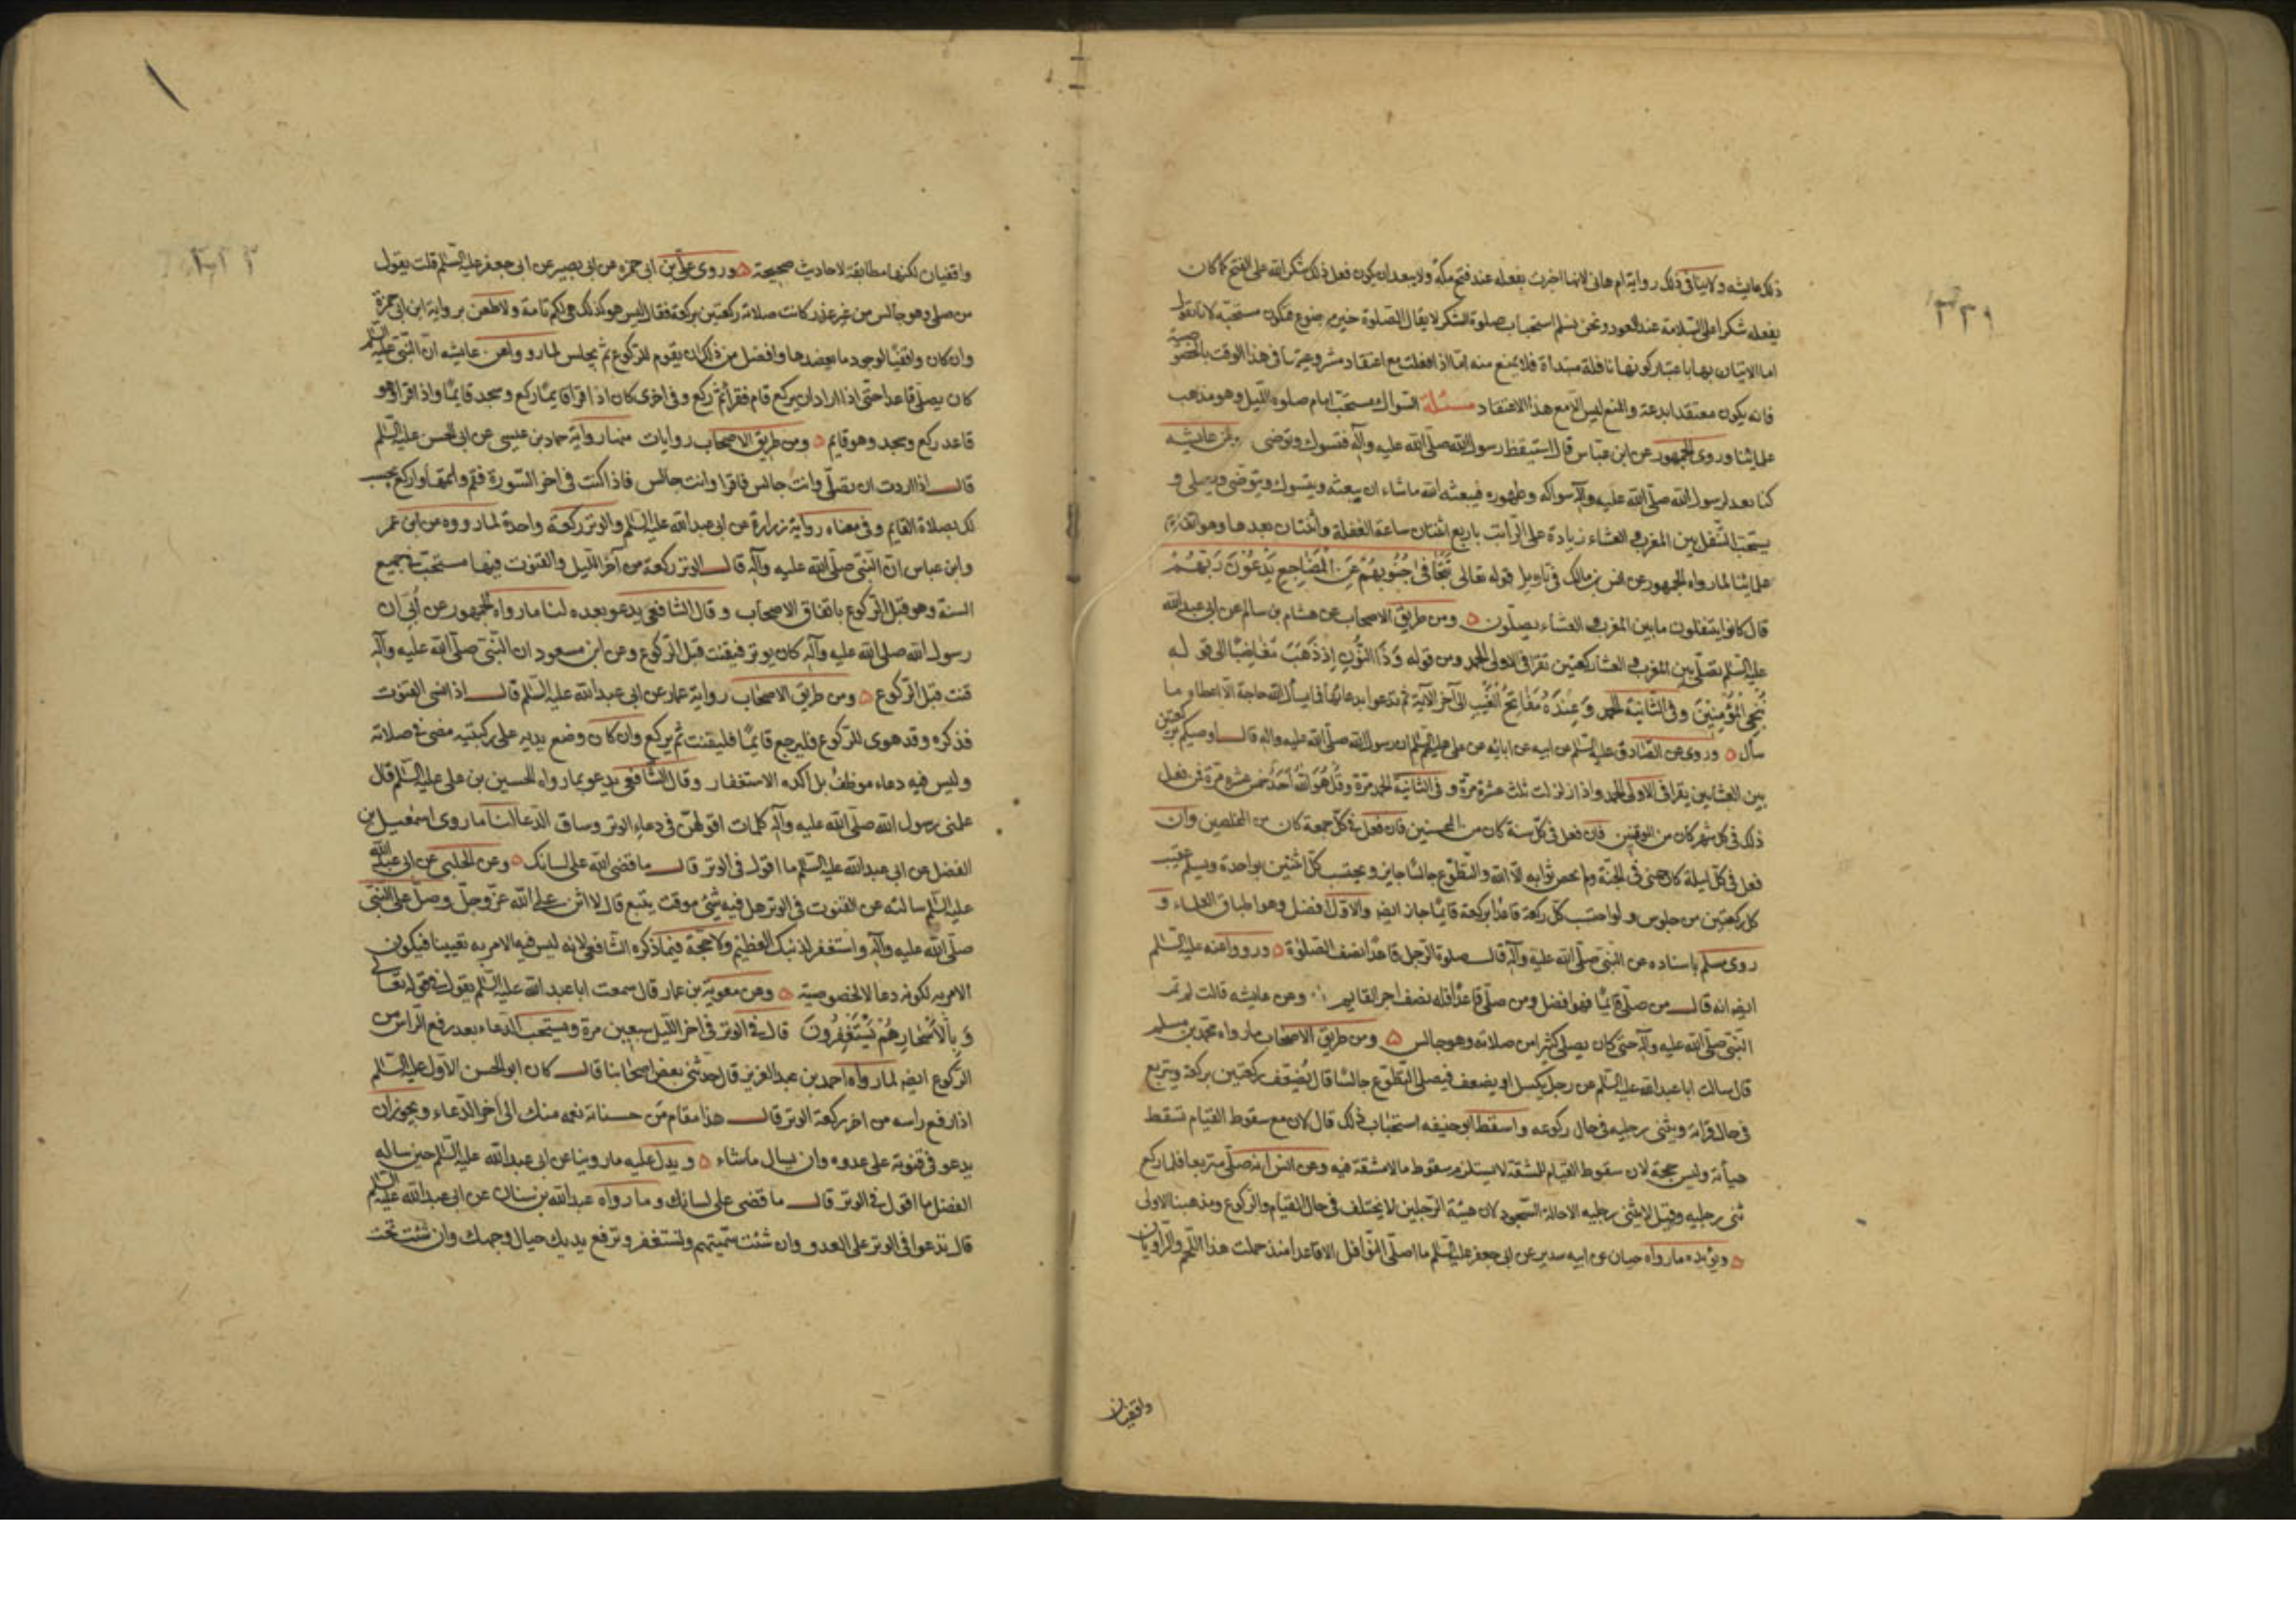 ذلك عايشه ولا ينافى ذلك رواية ام هانى لانها اخبرت بفعله عند فتح مكة ولا يبعد ان يكون فعل ذلك شكر الله على الفتح كما كان
يفعله شكرا على السلامة عند العود ونحن نسلم استحباب صلوة الشكر لا يقال الصلوة خير موضوع فتكون مستحبة لانا نقول
اما الاتيان بها باعتبار كونها نافلة مبتدأة فلا يمنع منه اما اذا فعلت مع اعتقاد مشروعيتها فى هذا الوقت بالخصوصية
فانه يكون معتقدا بدعة والمنع ليس الا مع هذا الاعتقاد مسئلة السواك مستحب امام صلوة الليل وهو مذهب
علمائنا وروى الجمهور عن ابن عباس قال استيقظ رسول الله صلى الله عليه وآله فتسوك وتوضى وعن عايشه
كنا نعد لرسول الله صلى الله عليه وآله سواكه وطهوره فيبعثه الله ماشاء ان يبعثه ويتسوك ويتوضى ويصلى و
يستحب التنفل بين المغرب والعشاء زيادة على الراتب باربع اثنتان ساعة الغفلة واثنتان بعدها وهو اتفاق
علمائنا لما رواه الجمهور عن انس بن مالك فى تاويل قوله تعالى تتجافى جنوبهم عن المضاجع يدعون ربهم
قال كانوا يتنفلون ما بين المغرب والعشاء يصلون ومن طريق الاصحاب عن هشام بن سالم عن ابى عبدالله
عليه السلم تصلى بين المغرب والعشا ركعتين تقرا فى الاولى الحمد ومن قوله وذا النون اذ ذهب مغاضبا الى قوله
ننجى المؤمنين وفى الثانية الحمد وعنده مفاتح الغيب الى آخر الآية ثم تدعوا بدعائها فما يسأل الله حاجة الا اعطاه ما
سأل وروى عن الصادق عليه السلم عن ابيه عن ابائه عن على عليهم السلم ان رسول الله صلى الله عليه واله قال اوصيكم بركعتين
بين العشاءين يقرا فى الاولى الحمد واذا زلزلت ثلث عشرة مرة و فى الثانية الحمد مرة وقل هو الله احد خمس عشرة مرة فمن فعل
ذلك فى كل شهر كان من الموقنين فان فعل فى كل سنة كان من المحسنين فان فعل فى كل جمعة كان من المخلصين وان
فعل فى كل ليلة كان معى فى الجنة ولم يحص ثوابه الا الله والتطوع جالسا جايز ويحتسب كل اثنتين بواحدة ويسلم عقيب
كل ركعتين من جلوس ولو احتسب كل ركعة قاعدا بركعة قائما جاز ايضا والاول افضل وهو اطباق العلماء و
روى مسلم باسناده عن النبى صلى الله عليه وآله قال صلوة الرجل قاعدا نصف الصلوة ورووا عنه عليه السلم
ايضا انه قال من صلى قائما فهو افضل ومن صلى قاعدا فله نصف اجر القايم وعن عايشه قالت لم يمت
النبى صلى الله عليه وآله حتى كان يصلى كثيرا من صلاته وهو جالس ومن طريق الاصحاب ما رواه محمد بن مسلم
قال سالت ابا عبدالله عليه السلم عن رجل يكسل او يضعف فيصلى التطوع جالسا قال يضعف ركعتين بركعة ويتربع
فى حال قرائة ويثنى رجليه فى حال ركوعه واسقط ابو حنيفه استحباب ذلك قال لان مع سقوط القيام تسقط
هيأته وليس حجة لان سقوط القيام للمشقة لا يستلزم سقوط ما لا مشقة فيه وعن انس انه صلى متربعا فلما ركع
ثنى رجليه وقيل لا يثنى رجليه الا حالة السجود لان هيئة الرجلين لا يختلف فى حال القيام والركوع ومذهبنا الاولى
ويؤيده ما رواه حيان عن ابيه سدير عن ابى جعفر عليه السلم ما اصلى النوافل الا قاعدا منذ حملت هذا اللحم والراويان
واقفيان
واقفيان لكنها مطابقة لاحاديث صحيحة وروى على بن ابى حمزه عن ابى بصير عن ابى جعفر عليه السلم قلت يقول
من صلى وهو جالس من غير عذر كانت صلاته ركعتين بركعة فقال ليس هو كذلك هى لكم تامة ولا طعن برواية ابن ابى حمزة
وان كان واقفيا لوجود ما يعضدها وافضل من ذلك ان يقوم للركوع ثم يجلس لما رووا عن عايشه ان النبى عليه السلم
كان يصلى قاعدا حتى اذا اراد ان يركع قام فقرا ثم ركع وفى اخرى كان اذا قرا قايما ركع وسجد قايما واذا قرا وهو
قاعد ركع وسجد وهو قايم ومن طريق الاصحاب روايات منها رواية حماد بن عيسى عن ابى الحسن عليه السلم
قال اذا اردت ان تصلى وانت جالس فاقرا وانت جالس فاذا كنت فى اخر السورة فقم واتمها واركع يحسب
لك بصلاة القايم وفى معناه رواية زرارة عن ابى عبدالله عليه السلم والوتر ركعة واحدة لما رووه عن ابن عمر
وابن عباس ان النبى صلى الله عليه وآله قال الوتر ركعة من آخر الليل والقنوت فيها مستحب فى جميع
السنة وهو قبل الركوع باتفاق الاصحاب وقال الشافعى يدعو بعده لنا ما رواه الجمهور عن أبى ان
رسول الله صلى الله عليه وآله كان يوتر فيقنت قبل الركوع وعن ابن مسعود ان النبى صلى الله عليه وآله
قنت قبل الركوع ومن طريق الاصحاب رواية عمار عن ابى عبدالله عليه السلم قال اذا نسى القنوت
فذكره وقد هوى للركوع فليرجع قايما فليقنت ثم يركع وان كان وضع يديه على ركبتيه مضى فى صلاته
وليس فيه دعاء موظف بل اكده الاستغفار وقال الشافعى يدعو بما رواه الحسين بن على عليه السلم قال
علمنى رسول الله صلى الله عليه وآله كلمات اقولهن فى دعاء الوتر وساق الدعا لنا ما روى اسمعيل بن
الفضل عن ابى عبدالله عليه السلم ما اقول فى الوتر قال ما قضى الله على لسانك وعن الحلبى عن ابى عبدالله
عليه السلم سالته عن القنوت فى الوتر هل فيه شئ موقت يتبع قال لا اثن على الله عز وجل وصل على النبى
صلى الله عليه وآله واستغفر لذنبك العظيم ولا حجة فيما ذكره الشافعى لانه ليس فيه الامر به تعيينا فيكون
الامر به لكونه دعا لا لخصوصيته وعن معوية بن عمار قال سمعت ابا عبدالله عليه السلم يقول فى قوله تعالى
وبالاسحار هم يستغفرون قال فى الوتر فى اخر الليل سبعين مرة ويستحب الدعاء بعد رفع الراس من
الركوع ايضا لما رواه احمد بن عبد العزيز قال حدثنى بعض اصحابنا قال كان ابو الحسن الاول عليه السلم
اذا رفع راسه من اخر ركعة الوتر قال هذا مقام من حسناته نعمه منك الى آخر الدعاء ويجوز ان
يدعو فى قنوته على عدوه وان يسال ماشاء ويدل عليه ما روينا عن ابى عبدالله عليه السلم حين ساله
الفضل ما اقول فى الوتر قال ما قضى على لسانك وما رواه عبدالله بن سنان عن ابى عبدالله عليه السلم
قال تدعوا فى الوتر على العدو وان شئت سميتهم وتستغفر وترفع يديك حيال وجهك وان شئت تحت